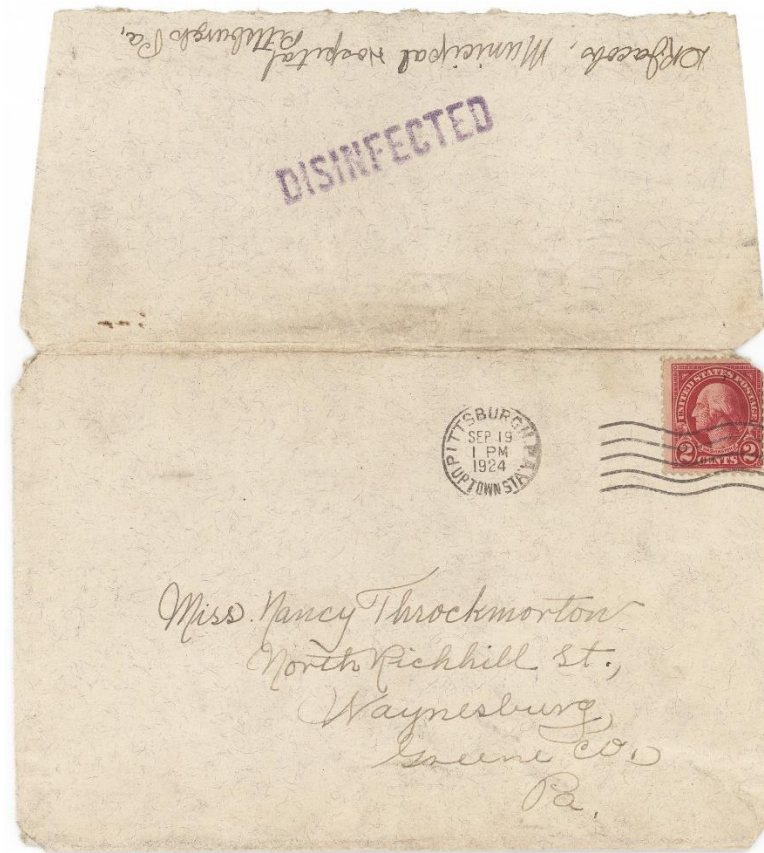 Jacobs, Municipal Hospital
Pittsburgh Pa,
DISINFECTED
PITTSBURGH, PA.
SEP 19
1 PM
1924
UPTOWN STA.
UNITED STATES POSTAGE
2 CENTS 2
Miss. Nancy Throckmorton
North Richhill St.,
Waynesburg,
Greene Co.,
Pa.